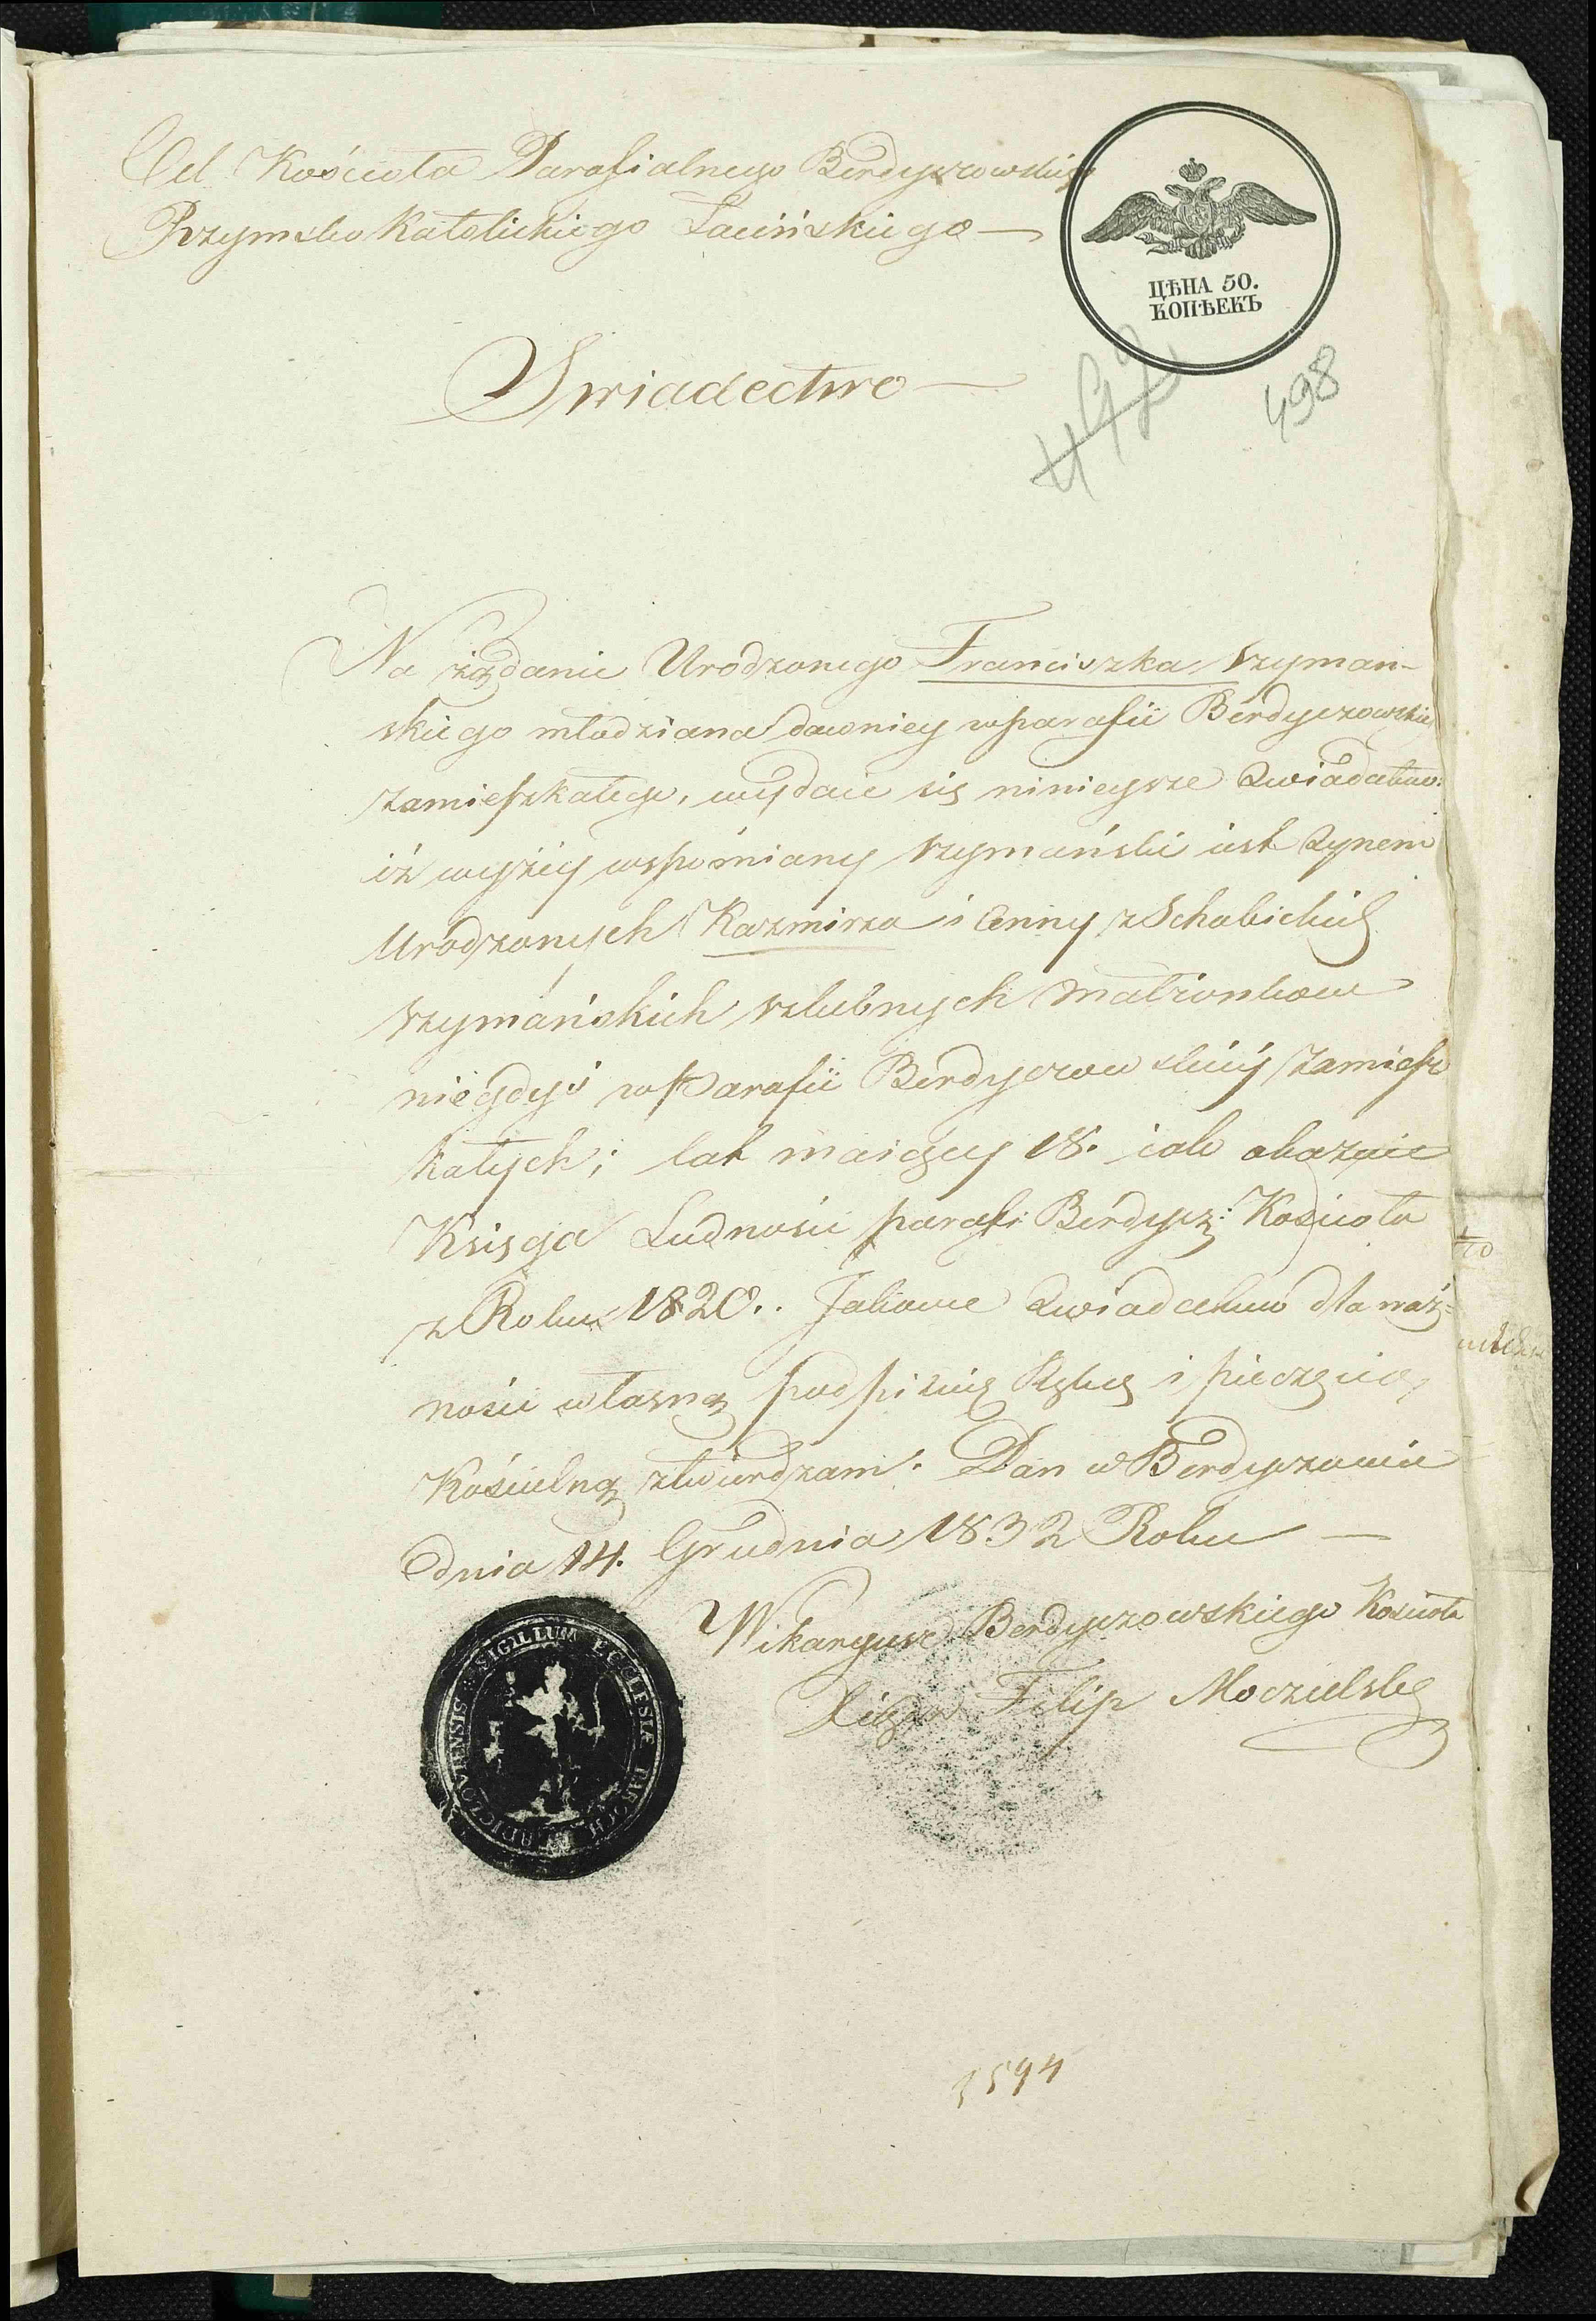 Od Kościoła Parafialnego Berdyczowskiego
Rzymsko Katolickiego Łacińskiego —
ЦѢНА 50.
КОПѢЕКЪ
Swiadectwo —
492
498
Na żądanie Urodzonego Franciszka Szyman-
skiego młodziana dawniey w parafii Berdyczowskiey
zamieszkałego, wydaie się ninieysze Swiadectwo:
iż wyżey wspomniany Szymański iest Synem
Urodzonych Kazmirza i Anny z Schabickich
Szymańskich szlubnych Małżonkow
niegdyś w Parafii Berdyczowskiey zamiesz
kałych; lat maiący 18. iak okazuie
Księga Ludnośći parafi: Berdycz: Kościoła
z Roku 1820.. Jakowe Swiadectwo dla waż=
nośći własną podpisuię Ręką i pieczęcią
Kościelną ztwierdzam. Dan w Berdyczowie
dnia 14. Grudnia 1832 Roku —
Wikaryusz Berdyczowskiego Kościoła
Xiądz Filip Moczulski
SIGILLUM ECCLESIÆ PAROCH BERDICZOVIENSIS
1594